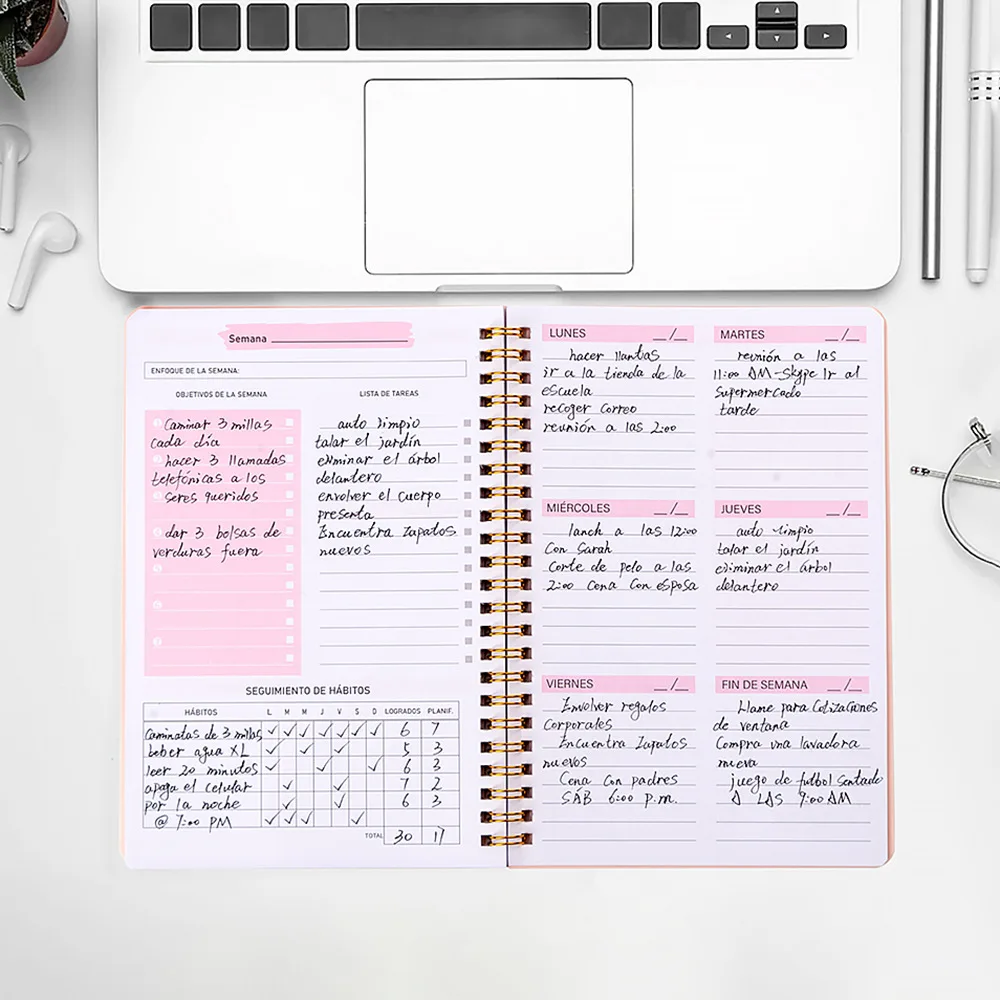 Semana
ENFOQUE DE LA SEMANA:
OBJETIVOS DE LA SEMANA
Caminar 3 millas
cada día
hacer 3 llamadas
telefónicas a los
seres queridos
dar 3 bolsas de
verduras fuera
LISTA DE TAREAS
auto limpio
talar el jardín
eliminar el árbol
delantero
envolver el cuerpo
presenta
Encuentra Zapatos
nuevos
SEGUIMIENTO DE HÁBITOS
HÁBITOS L M M J V S D LOGRADOS PLANIF.
Caminatas de 3 millas 6 7
beber agua XL 5 3
leer 20 minutos 6 3
apaga el celular 7 2
por la noche 6 3
@ 7:00 PM
TOTAL 30 17
LUNES __/__
hacer llantas
ir a la tienda de la
escuela
recoger correo
reunión a las 2:00
MARTES __/__
reunión a las
11:00 AM-Skype Ir al
Supermercado
tarde
MIÉRCOLES __/__
lanch a las 12:00
Con Sarah
Corte de pelo a las
2:00 Cena Con esposa
JUEVES __/__
auto limpio
talar el jardín
eliminar el árbol
delantero
VIERNES __/__
Envolver regalos
Corporales
Encuentra Zapatos
nuevos
Cena Con padres
SÁB 6:00 p.m.
FIN DE SEMANA __/__
Llame para Cotizaciones
de ventana
Compra una lavadora
nueva
juego de futbol Sentado
A LAS 9:00 AM